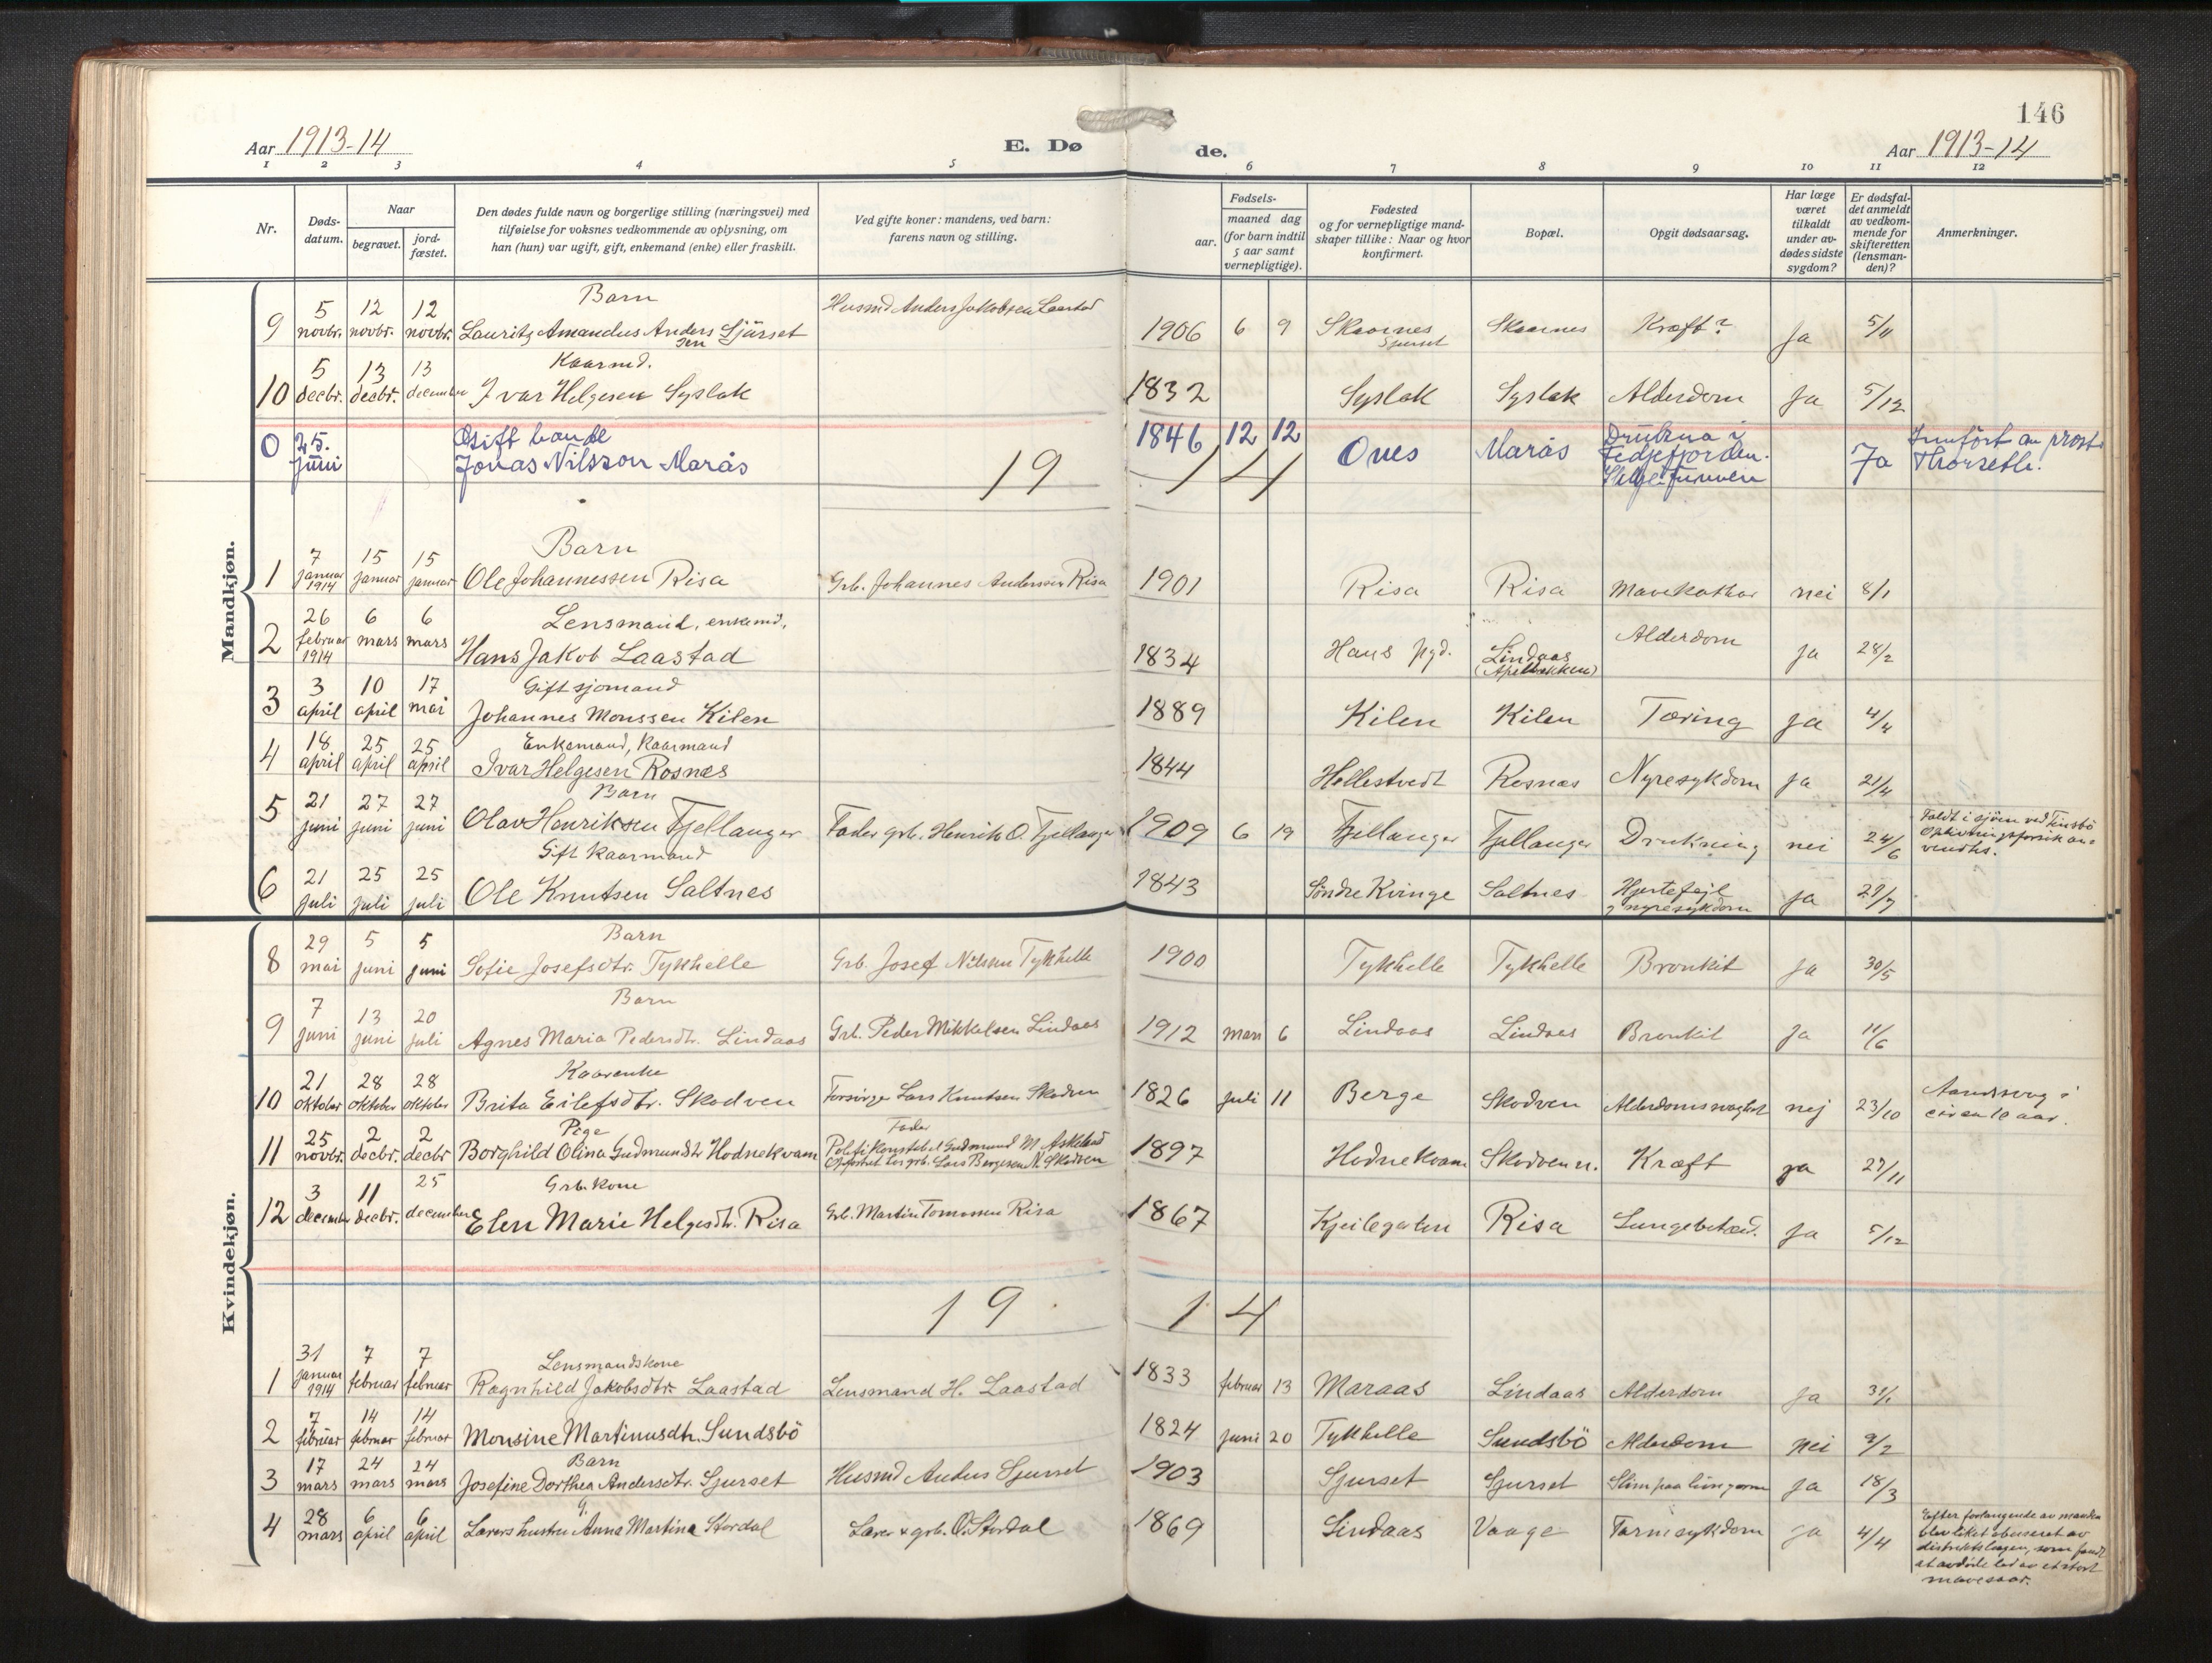 146
Aar 1913-14
E. Dø
de.
Aar 1913-14
1 2 3 4 5 6 7 8 9 10 11 12
Nr.
Døds-
datum.
Naar
begravet.
jord-
fæstet.
Den dødes fulde navn og borgerlige stilling (næringsvei) med
tilføielse for voksnes vedkommende av oplysning, om
han (hun) var ugift, gift, enkemand (enke) eller fraskilt.
Ved gifte koner: mandens, ved barn:
farens navn og stilling.
Fødsels-
aar.
maaned dag
(for barn indtil
5 aar samt
vernepligtige).
Fødested
og for vernepligtige mand-
skaper tillike: Naar og hvor
konfirmert.
Bopæl.
Opgit dødsaarsag.
Har læge
været
tilkaldt
under av-
dødes sidste
sygdom?
Er dødsfal-
det anmeldt
av vedkom-
mende for
skifteretten
(lensman-
den)?
Anmerkninger.
Mandkjøn.
5 12 12 Barn Husmd Anders Jakobsen Laastad
9 novbr. novbr. novbr. Lauritz Amandus Anders Sjürset 1906 6 9 Skaarnes Skaarnes Kræft? Ja 5/11
sen Sjurset
5 13 13 Kaarmd.
10 decbr. decbr. december Ivar Helgesen Syslak 1832 Syslak Syslak Alderdom Ja 5/12
0 25. Gift 1846 12 12 Drukna i Innfört av prost
juni Jonas Nilsson Marås Marås Fedjefjorden. Ja Thorseth.
19 14
7 15 15 Barn
1 januar januar januar Ole Johannessen Risa Grb. Johannes Andersen Risa 1901 Risa Risa Mavekathar nei 8/1
1914
26 6 6 Lensmand, enkemd.
2 februar mars mars Hans Jakob Laastad 1834 Haus pgd. Lindaas Alderdom ja 28/2
1914
3 10 17 Gift sjömand
3 april april mai Johannes Monssen Kilen 1889 Kilen Kilen Tæring ja 4/4
18 25 25 Enkemand, Kaarmand
4 april april april Ivar Helgesen Rosnæs 1844 Hellestvedt Rosnæs Nyresykdom ja 21/4
21 27 27 Barn
5 juni juni juni Olav Henriksen Fjellanger Fader grb. Henrik O. Fjellanger 1909 6 19 Fjellanger Fjellanger Drukning nei 24/6 Faldt i sjöen ved
Oplivningsforsök an-
vendtes.
21 25 25 Gift Kaarmand
6 juli juli juli Ole Knutsen Saltnes 1843 Søndre Kvinge Saltnes Hjertefejl ja 27/7
og nyresykdom
Kvindekjøn.
29 5 5 Barn
8 mai juni juni Sofie Josefsdtr. Tykhelle Grb. Josef Nilsen Tykhelle 1900 Tykhelle Tykhelle Bronkit ja 30/5
7 13 20 Barn
9 juni juni juli Agnes Maria Pedersdtr. Lindaas Grb. Peder Mikkelsen Lindaas 1912 mars 6 Lindaas Lindaas Bronkit ja 11/6
21 28 28 Kaarenke
10 oktober oktober oktober Brita Eilefsdtr. Skodven Forsörger Lars Knutsen Skodven 1826 juli 11 Berge Skodven Alderdomssvaghet nej 23/10 Aandssvag i
circa 10 aar.
25 2 2 Pige Fader
11 novbr. decbr. decbr Borghild Olina Gudmundsdtr Hodnekvam Politikonstabel Gudmund M. Askeland 1897 Hodnekvam Skodven n. Kræft ja 27/11
Opfostret hos grb. Lars Bergesen N. Skodven
3 11 25 Grb. kone
12 december decbr. december Elen Marie Helgesdtr. Risa Grb. Martin Tomassen Risa 1867 Risa Lungebetænd. ja 5/12
19 14
31 7 7 Lensmandskone
1 januar februar februar Ragnhild Jakobsdtr Laastad Lensmand H. Laastad 1833 februar 13 Maraas Lindaas Alderdom ja 31/1
1914
7 14 14
2 februar februar februar Monsine Martinusdtr. Sundsbö 1824 juni 20 Tykhelle Sundsbö Alderdom nei 9/2
17 24 24 Barn
3 mars mars mars Josefine Dorthea Andersdtr. Sjurset Husmd Anders Sjurset 1903 Sjurset Sjurset Slim paa lungerne ja 18/3
28 6 6
4 mars april april Lærers hustru Anna Martina Stordal Lærer & grb. O. Stordal 1869 Lindaas Vaage Tarmsykdom ja 4/4 Efter forlangende av manden
blev liket obduseret av
distriktslægen, som fandt
at avdöde led av et stort
mavesaar.